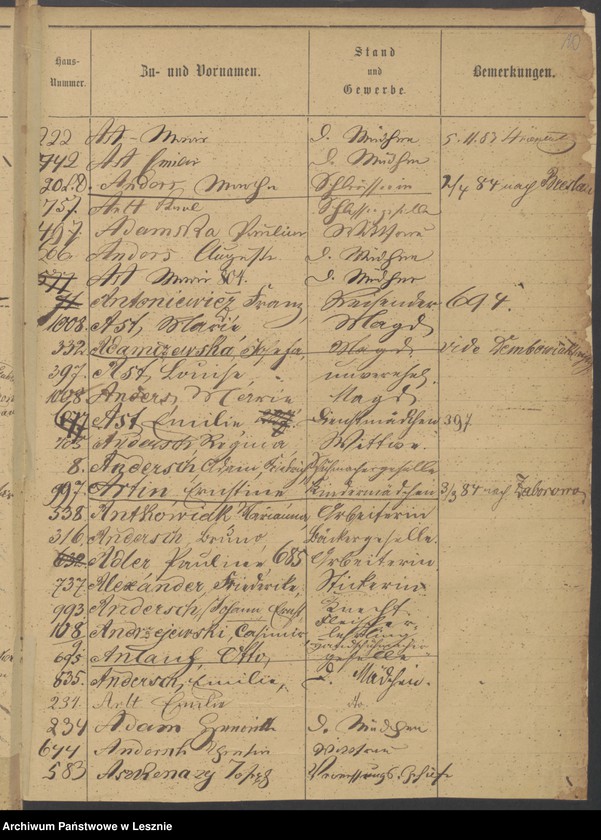 180
Haus-Nummer.
Zu- und Vornamen.
Stand und Gewerbe.
Bemerkungen.
222 Ast Marie d. Mädchen 5.11.83
742 Ast Emilie d. Mädchen
202.d. Anders, Schleusserin 2/4 84 nach Breslau
757. Arlt Paul Schlossergeselle
407 Adamska Pauline Wittwe
206 Anders Auguste d. Mädchen
577 Ast Marie d. Mädchen
Antoniewicz, Franz, Reisender 694.
1008. Ast, Marie Magd
332. Adamczewska, Josefa, Magd vide
397. Ast, Louise, unverehel.
1008. Anders, Marie Magd
677 Ast, Emilie Dienstmädchen 397
705 Anderss, Regina Wittwe.
8. Andersch Adam, Friedrich Schuhmachergeselle
997 Artin, Ernstine Kindermädchen 3/3 84 nach Zaborowo
538. Antkowiak Marianna Arbeiterin
316 Andersch, Bruno, Bäckergeselle.
632 Adler Pauline 685 Arbeiterin
737. Alexander, Friederike, Stickerin
993 Andersch, Johann Ernst, Knecht
108 Andrzejewski, Casimir Fleischerlehrling
695 Anlauf, Otto, geselle
635. Andersch, Emilie, d. Mädchen.
234. Arlt Emilie do.
234 Adam d. Mädchen
644 Andersch Wittwe
583 Aszkenazy Joseph
Archiwum Państwowe w Lesznie